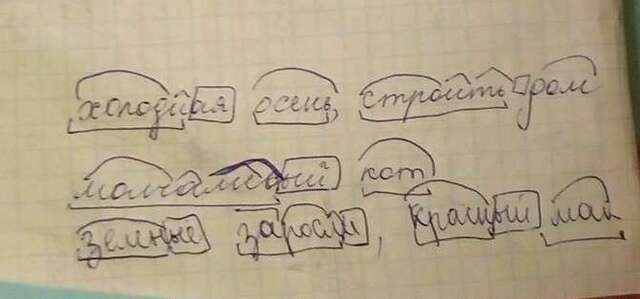 холодная осень, строить дом
молчаливый кот
земные заросли, красный мак